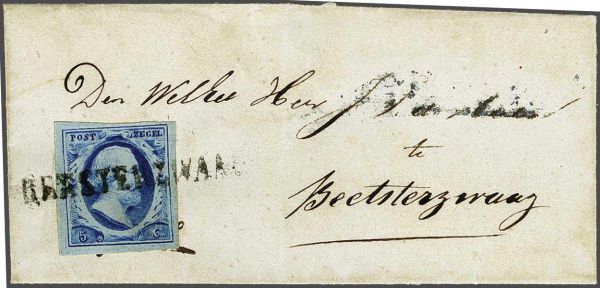 Den Welheer Heer J
te
Beetsterzwaag
POST ZEGEL
BEESTERZWAAG
5 C.